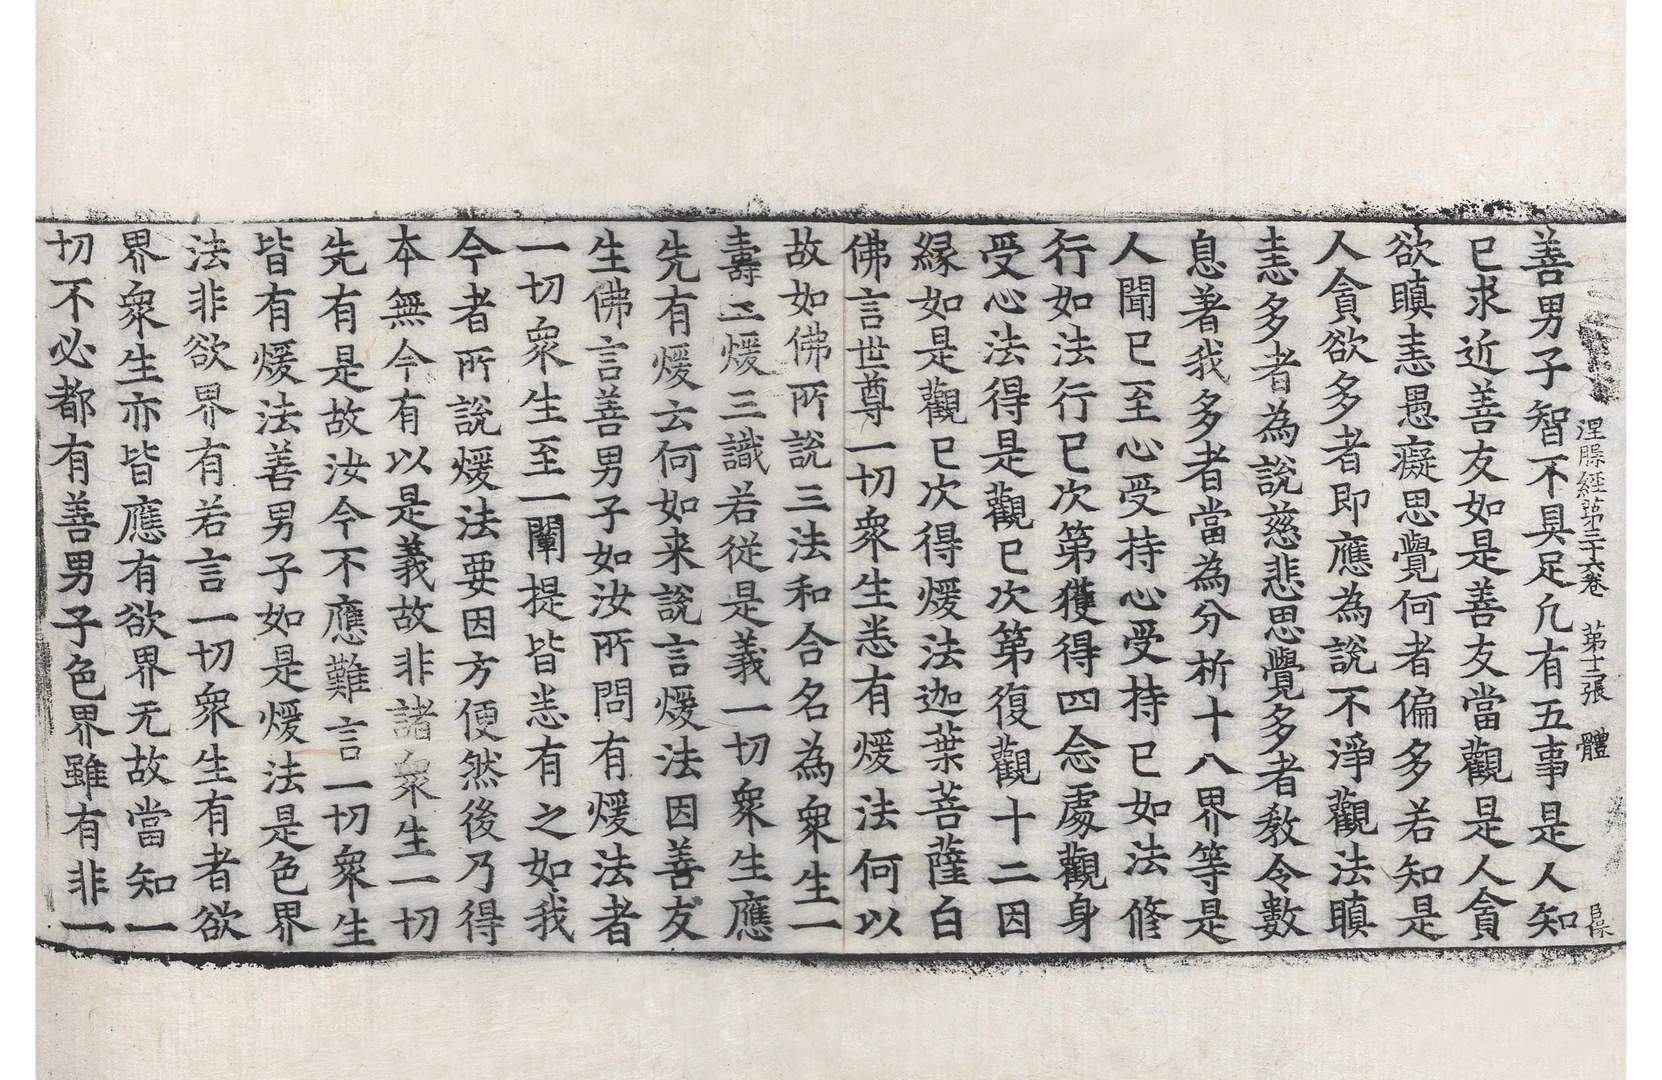 涅槃經第三十六卷 第十二張 體
善男子智不具足凢有五事是人知
已求近善友如是善友當觀是人貪
欲瞋恚愚癡思覺何者偏多若知是
人貪欲多者即應為說不淨觀法瞋
恚多者為說慈悲思覺多者教令數
息著我多者當為分析十八界等是
人聞已至心受持心受持已如法修
行如法行已次第獲得四念處觀身
受心法得是觀已次第復觀十二因
緣如是觀已次得煖法迦葉菩薩白
佛言世尊一切衆生悉有煖法何以
故如佛所說三法和合名為衆生一
壽二煖三識若從是義一切衆生應
先有煖云何如来說言煖法因善友
生佛言善男子如汝所問有煖法者
一切衆生至一闡提皆悉有之如我
今者所說煖法要因方便然後乃得
本無今有以是義故非諸衆生一切
先有是故汝今不應難言一切衆生
皆有煖法善男子如是煖法是色界
法非欲界有若言一切衆生有者欲
界衆生亦皆應有欲界无故當知一
切不必都有善男子色界雖有非一